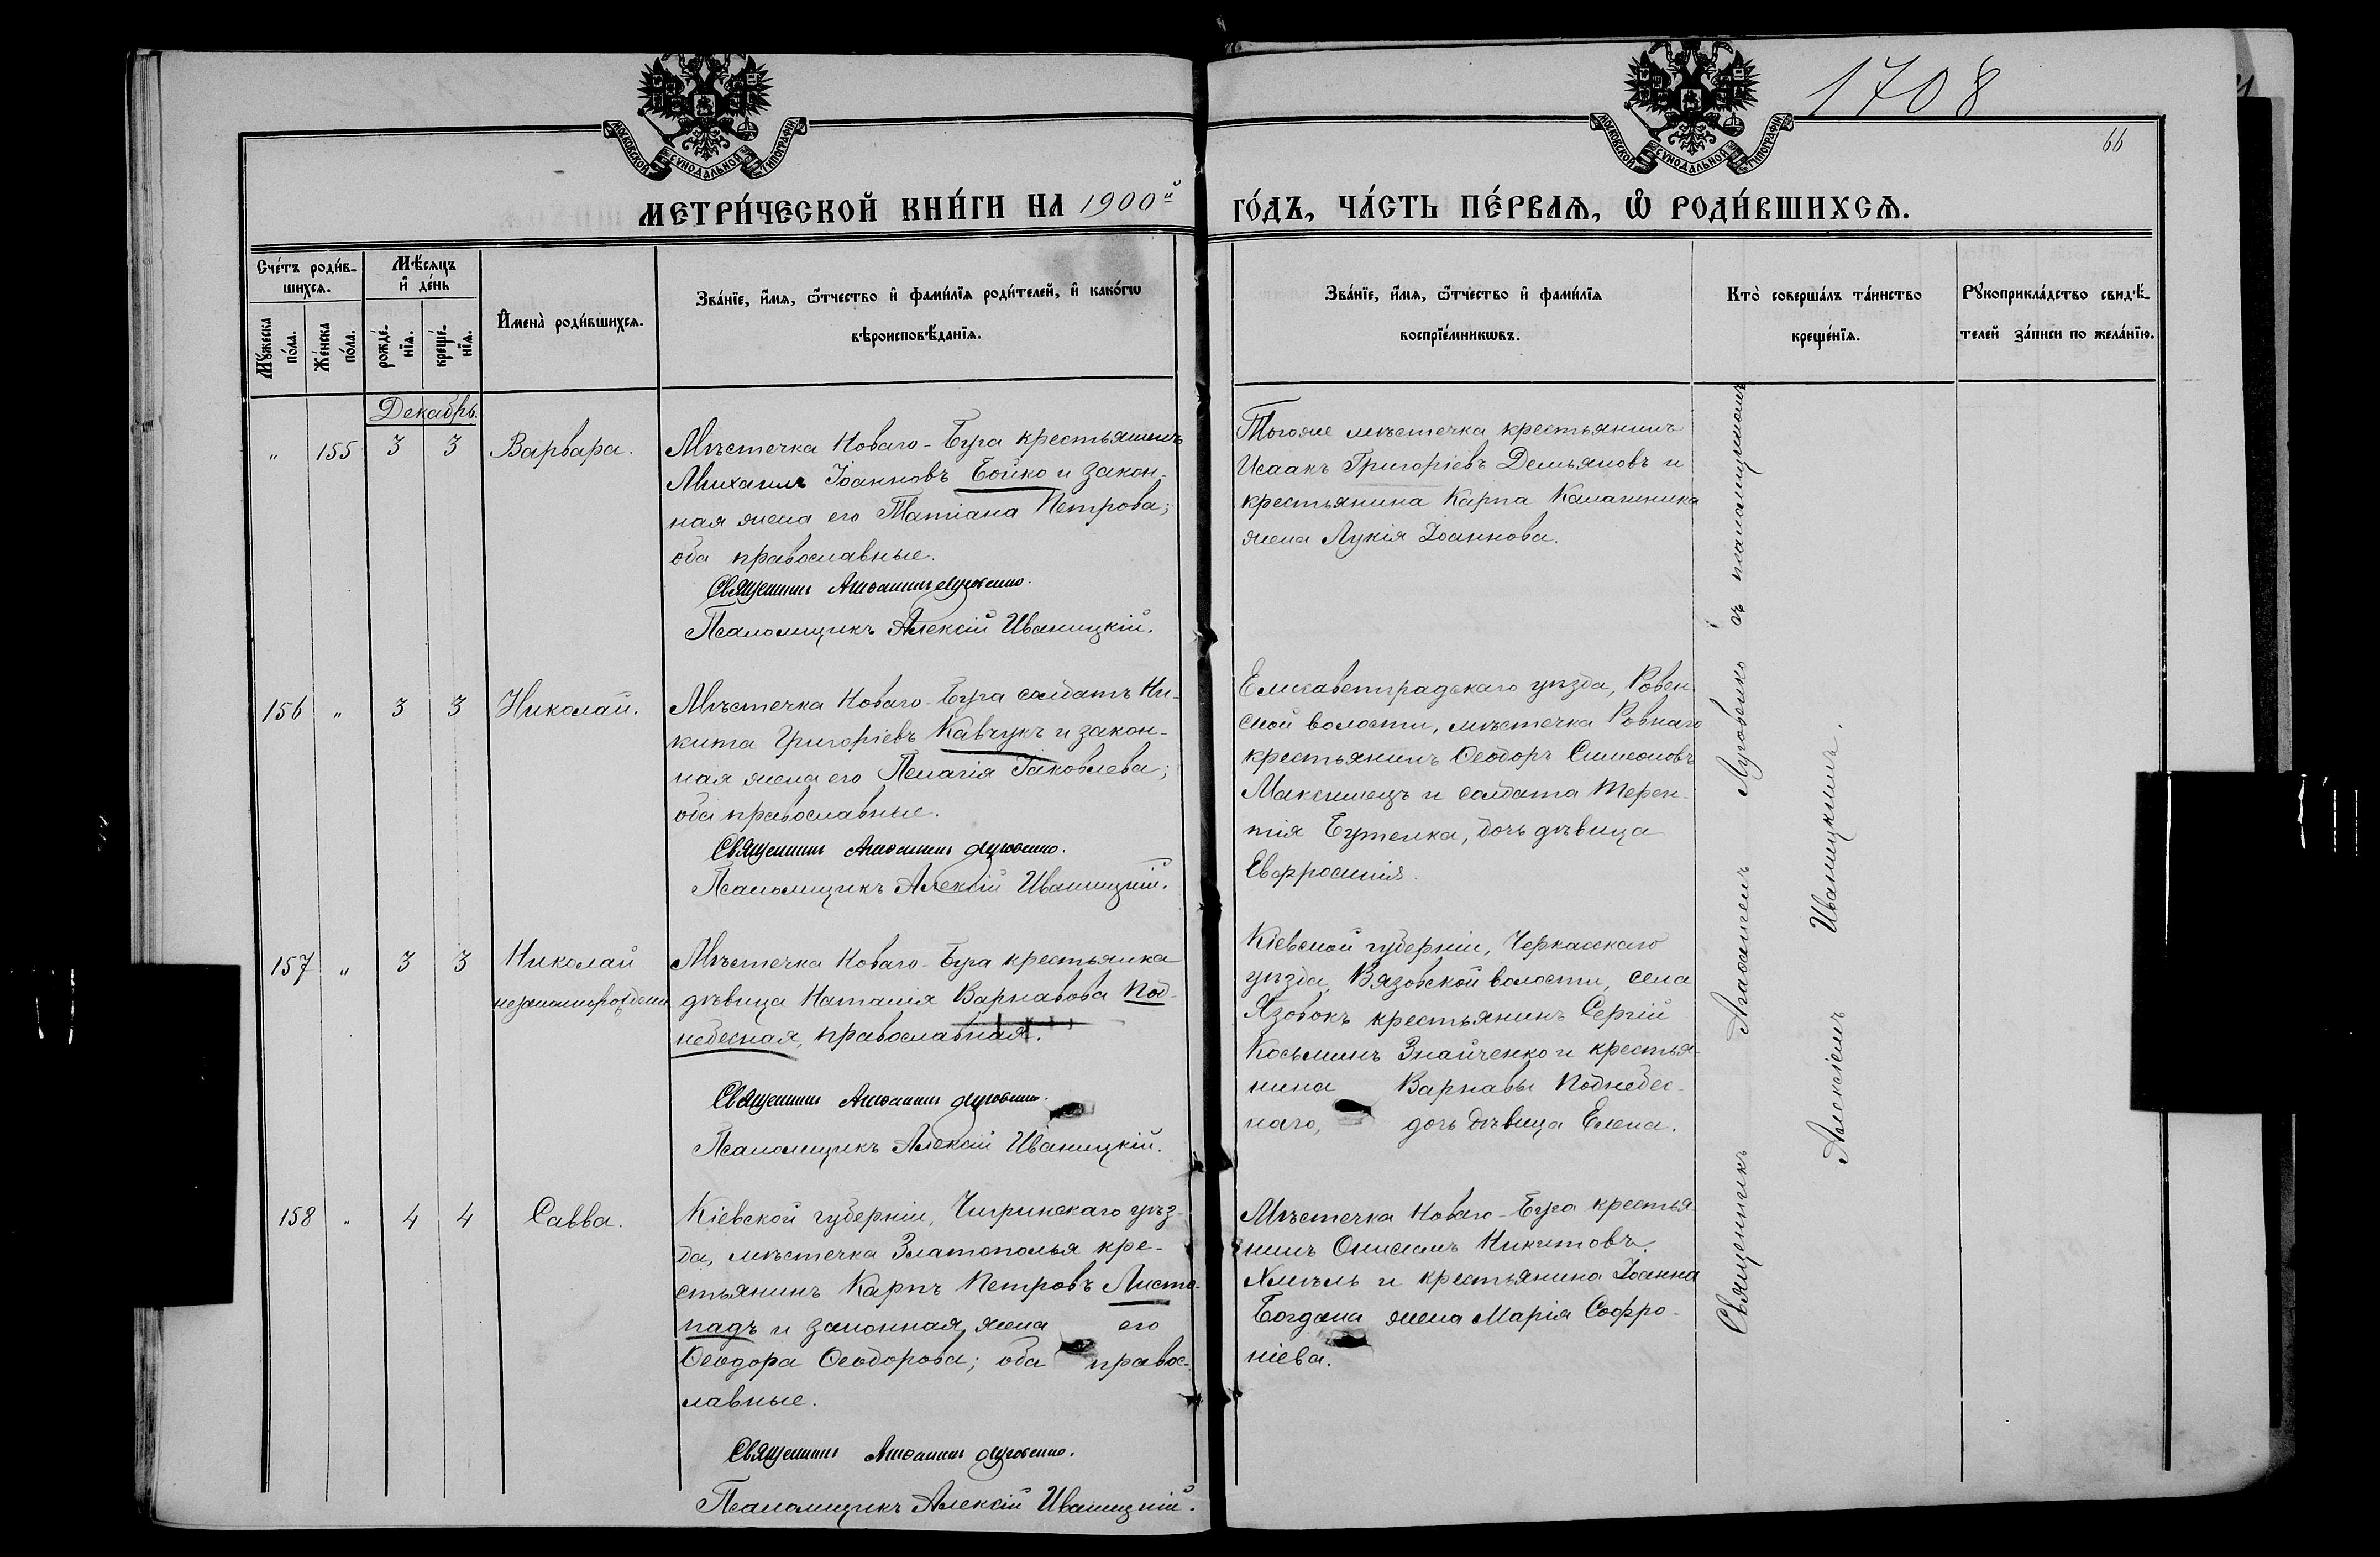 1708
66
МОСКОВСКОЙ СѴНОДАЛЬНОЙ ТИПОГРАФІИ
МОСКОВСКОЙ СѴНОДАЛЬНОЙ ТИПОГРАФІИ
МЕТРИ́ЧЕСКОЙ КНИ́ГИ НА 1900й ГО́ДЪ, ЧА́СТЬ ПЕ́РВАѦ, Ѡ҆ РОДИ́ВШИХСѦ.
Сче́тъ роди́в-
шихсѧ.
Мꙋ́жеска по́ла.
Же́нска по́ла.
Мѣ́сѧцъ
и҆ де́нь
рожде́-
нїѧ.
креще́-
нїѧ.
И҆мена̀ роди́вшихсѧ.
Зва́нїе, и҆́мѧ, ѻ҆́тчество и҆ фами́лїѧ роди́телей, и҆ како́гѡ
вѣроисповѣ́данїѧ.
Зва́нїе, и҆́мѧ, ѻ҆́тчество и҆ фами́лїѧ
воспрїе́мникѡвъ.
Кто̀ соверша́лъ та́инство
креще́нїѧ.
Рꙋкоприкла́дство свидѣ́-
телей за́писи по жела́нїю.
Декабрь.
" 155 3 3 Варвара.
Мѣстечка Новаго-Буга крестьянинъ
Михаилъ Іоанновъ Бойко и закон-
ная жена его Татіана Петрова;
оба православные.
Священникъ Агаѳангелъ Луговенко.
Псаломщикъ Алексій Иваницкій.
Тогоже мѣстечка крестьянинъ
Исаакъ Григоріевъ Демьяновъ и
крестьянина Карпа Калашника
жена Лукія Іоаннова.
156 " 3 3 Николай.
Мѣстечка Новаго-Буга солдатъ Ни-
кита Григоріевъ Кавчукъ и закон-
ная жена его Пелагія Іаковлева;
оба православные.
Священникъ Агаѳангелъ Луговенко.
Псаломщикъ Алексій Иваницкій.
Елисаветградскаго уѣзда, Ровен-
ской волости, мѣстечка Ровнаго
крестьянинъ Ѳеодоръ Симеоновъ
Максимецъ и солдата Терен-
тія Бутенка, дочь дѣвица
Евфросинія.
157 " 3 3 Николай
незаконнорожденн
Мѣстечка Новаго-Буга крестьянка
дѣвица Наталія Варнавова Под-
небесная, православная.
Священникъ Агаѳангелъ Луговенко.
Псаломщикъ Алексій Иваницкій.
Кіевской губерніи, Черкасскаго
уѣзда, Вязовской волости, села
Язовокъ крестьянинъ Сергій
Косьминъ Знайченко и крестья-
нина Варнавы Поднебес-
наго, дочь дѣвица Елена.
158 " 4 4 Савва.
Кіевской губерніи, Чигринскаго уѣз-
да, мѣстечка Златополья кре-
стьянинъ Карпъ Петровъ Листо-
падъ и законная жена его
Ѳеодора Ѳеодорова; оба правос-
лавные.
Священникъ Агаѳангелъ Луговенко.
Псаломщикъ Алексій Иваницкій.
Мѣстечка Новаго-Буга крестья-
нинъ Онисимъ Никитовъ
Хмѣль и крестьянина Іоанна
Богдана жена Марія Софро-
ніева.
Священникъ Агаѳангелъ Луговенко съ псаломщикомъ
Алексіемъ Иваницкимъ.